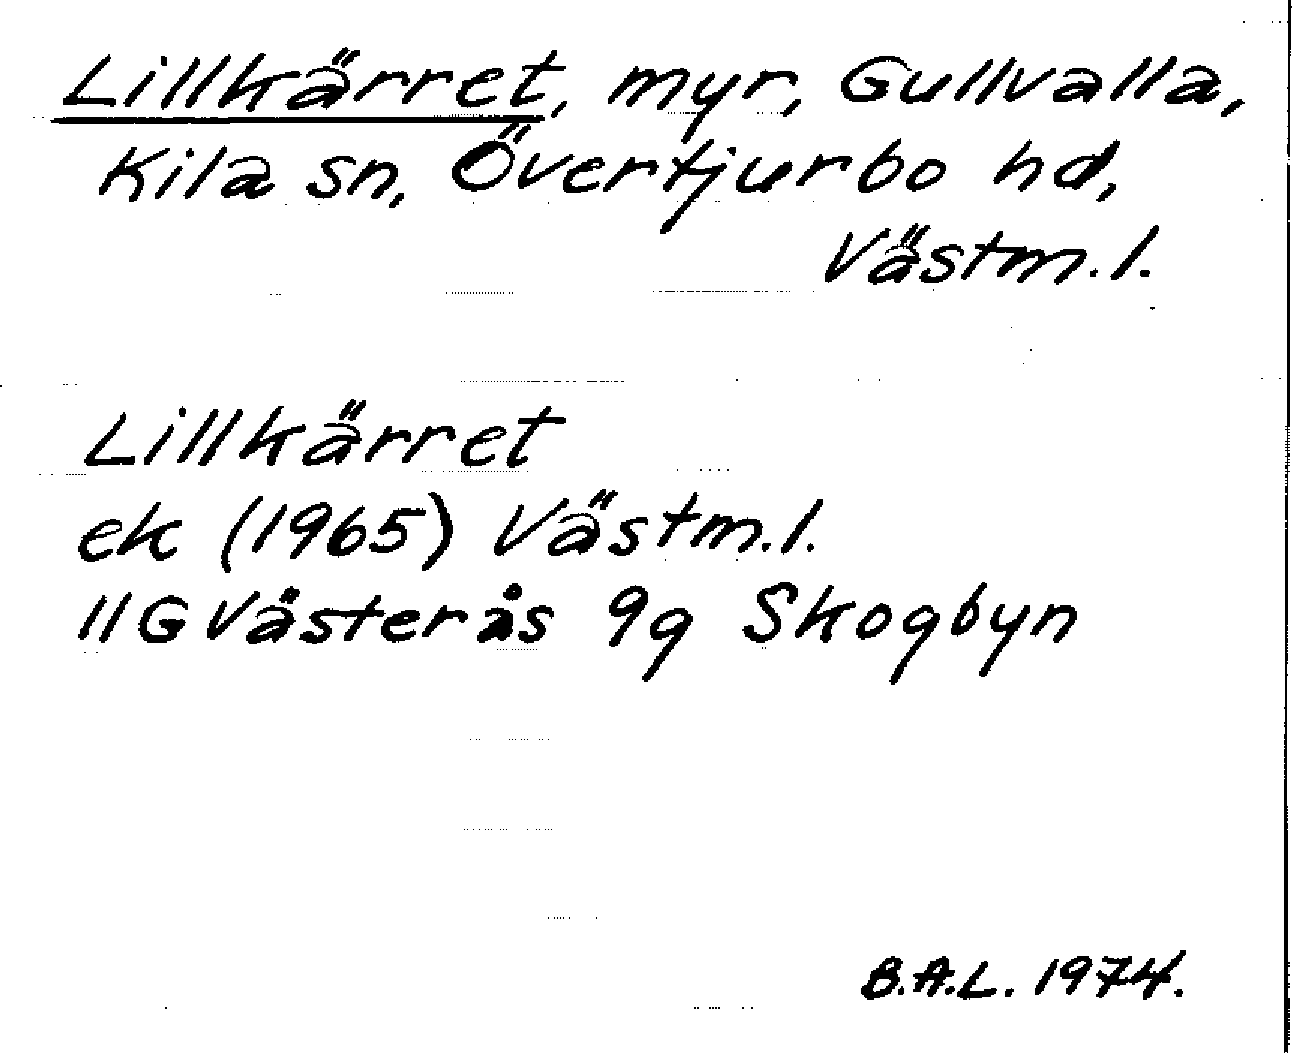 Lillkärret, myr, Gullvalla,
Kila sn, Övertjurbo hd,
Västm.l.
Lillkärret
ek (1965) Västm.l.
11G Västerås 9g Skogbyn
B.A.L. 1974.